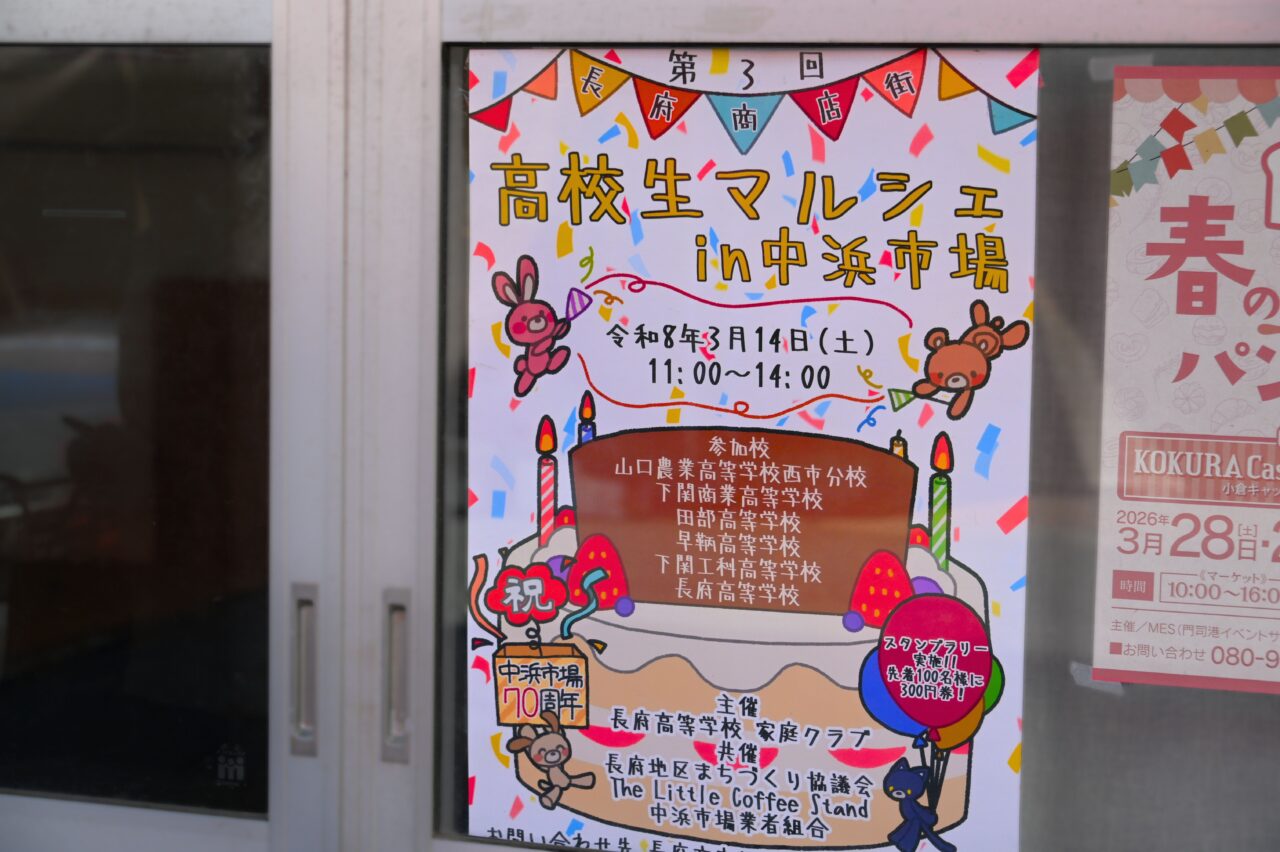 第3回
長府商店街
高校生マルシェ
in中浜市場
令和8年3月14日(土)
11:00～14:00
参加校
山口農業高等学校西市分校
下関商業高等学校
田部高等学校
早鞆高等学校
下関工科高等学校
長府高等学校
祝
中浜市場
70周年
スタンプラリー
実施!!
先着100名様に
300円券!
主催
長府高等学校 家庭クラブ
共催
長府地区まちづくり協議会
The Little Coffee Stand
中浜市場業者組合
お問い合わせ先
春の
パン
KOKURA Cas
小倉キャッ
2026年
3月28日[土]
時間
《マーケット》
10:00〜16:0
主催／MES(門司港イベントサ
■お問い合わせ 080-9